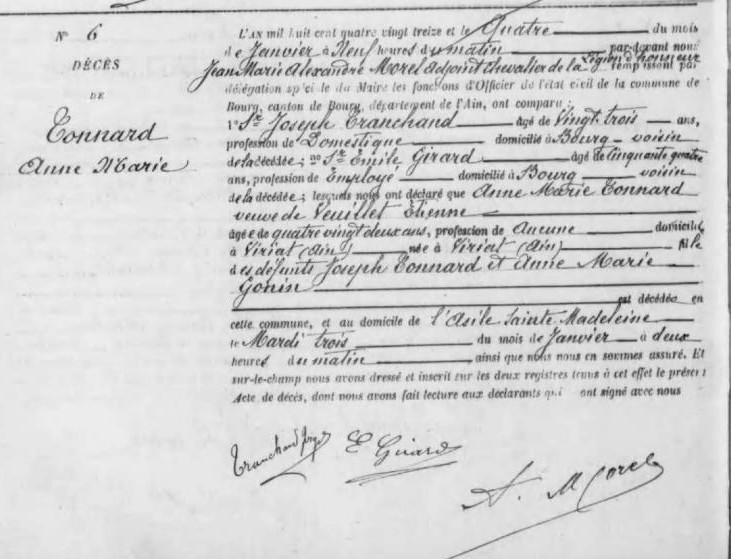 N° 6
DÉCÈS
DE
Tonnard
Anne Marie
L'AN mil huit cent quatre vingt treize et le Quatre du mois
de Janvier à Neuf heures du matin par-devant nous
Jean Marie Alexandre Morel adjoint chevalier de la Légion d'honneur remplissant par
délégation spéciale du Maire les fonctions d'Officier de l'état civil de la commune de
Bourg, canton de Bourg, département de l'Ain, ont comparu :
1° Sr Joseph Tranchand âgé de Vingt trois ans,
profession de Domestique domicilié à Bourg voisin
de la décédée; 2° Sr Emile Girard âgé de Cinquante quatre
ans, profession de Employé domicilié à Bourg voisin
de la décédée; lesquels nous ont déclaré que Anne Marie Tonnard
veuve de Veuillet Etienne
âgée de quatre vingt deux ans, profession de Aucune domicilié
à Viriat (Ain) née à Viriat (Ain) fille
des défunts Joseph Tonnard et Anne Marie
Gonin
est décédée en
cette commune, et au domicile de l'Asile Sainte Madeleine
le Mardi trois du mois de Janvier à deux
heures du matin ainsi que nous nous en sommes assuré. Et
sur-le-champ nous avons dressé et inscrit sur les deux registres tenus à cet effet le présent
Acte de décès, dont nous avons fait lecture aux déclarants qui ont signé avec nous
Tranchand E Girard
A. Morel